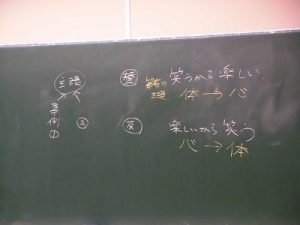 主張
事例
①
②
筆 笑うから楽しい
体→心
反 楽しいから笑う
心→体